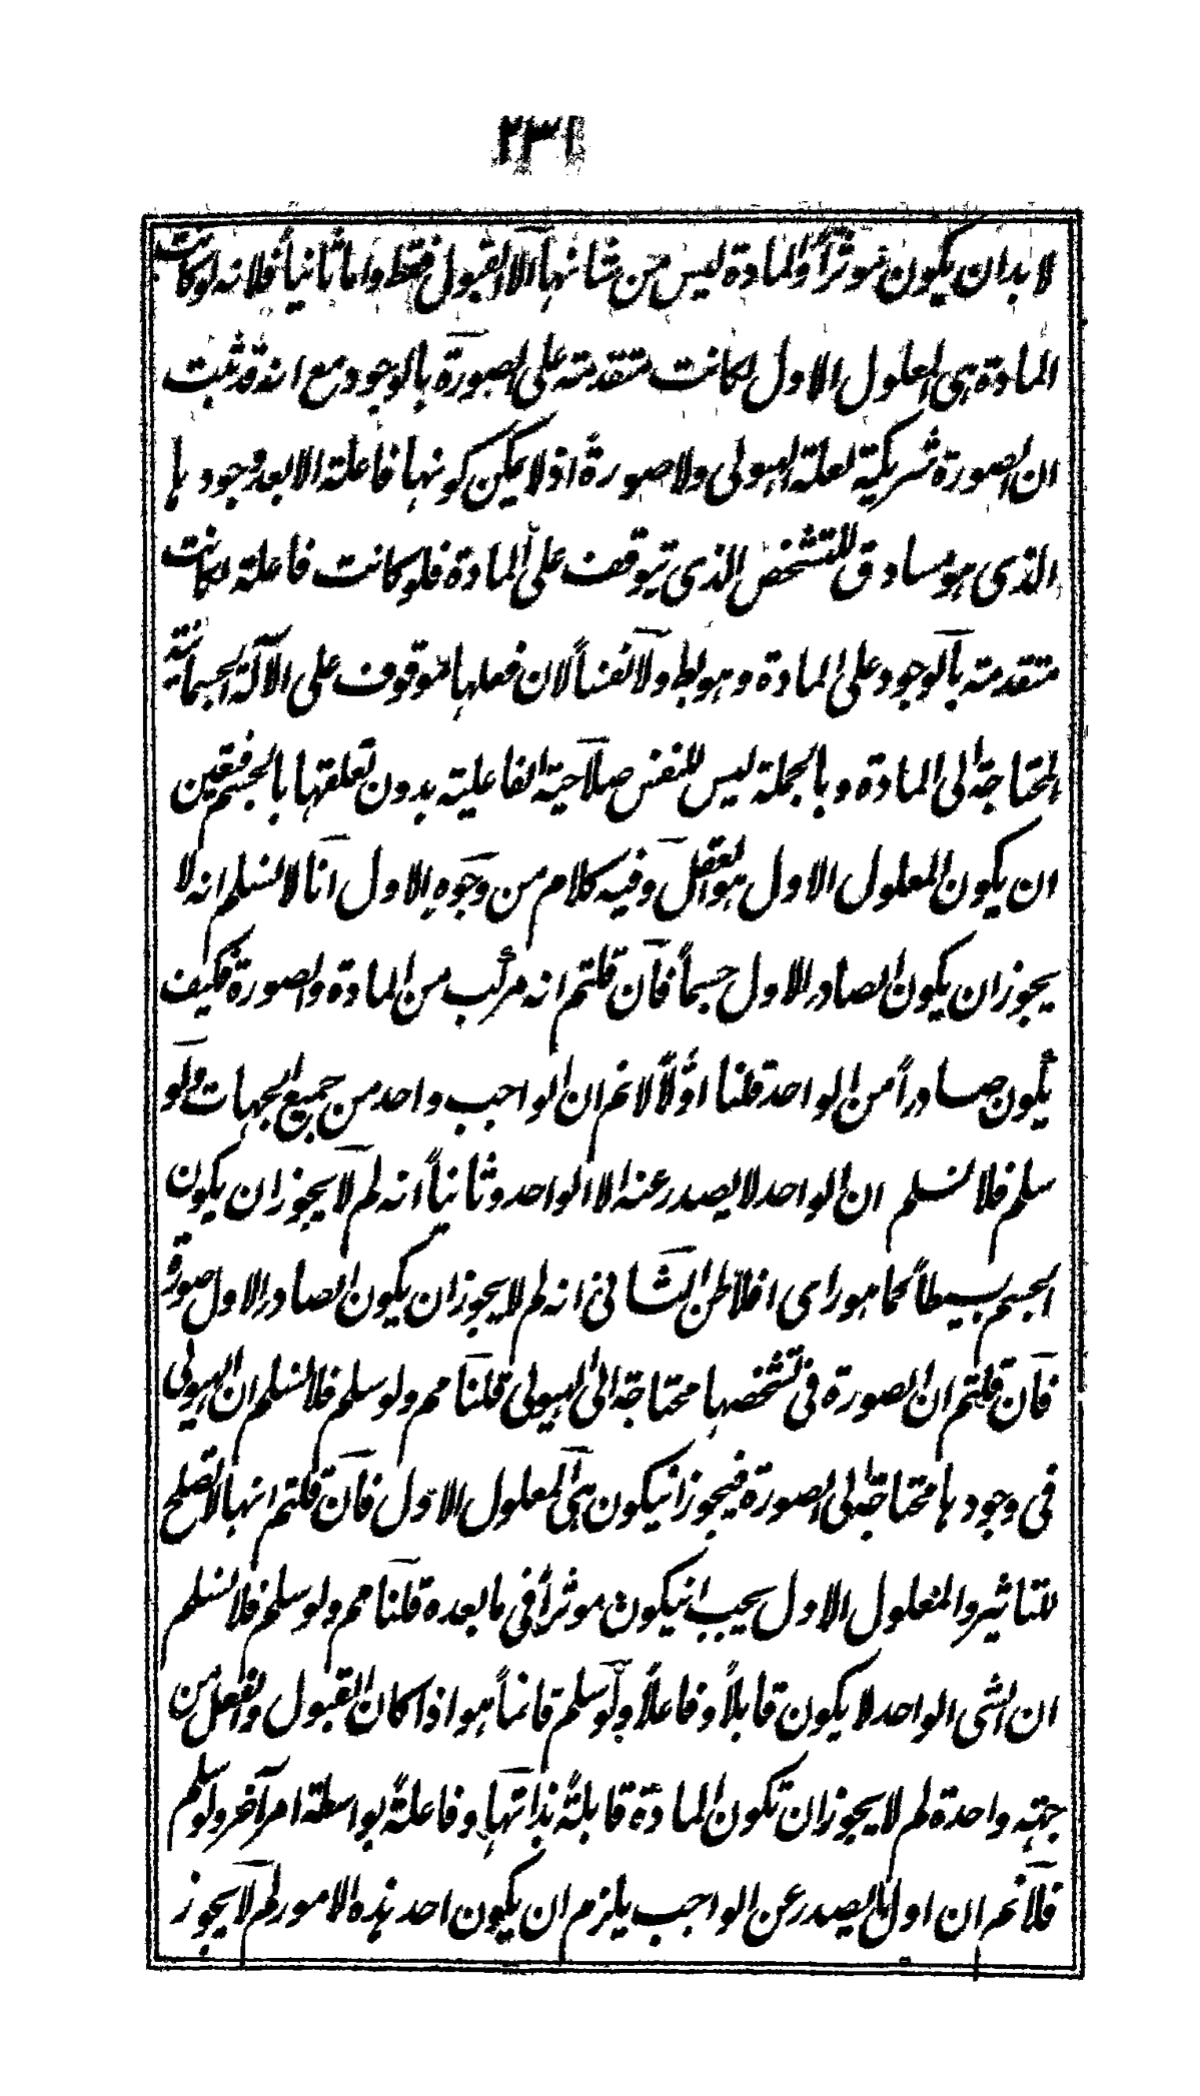 ٢٣١
لا بد ان يكون موثراً والمادة ليس من شانها الا القبول فقط واما ثانياً فلانه لو كانت
المادة هى المعلول الاول لكانت متقدمة على الصورة بالوجود مع انه قد ثبت
ان الصورة شريكة لعلة الهيولى ولا صورة اذ لا يمكن كونها فاعلة الا بعد وجودها
الذى هو مساوق للتشخص الذى يتوقف على المادة فلو كانت فاعلة لكانت
متقدمة بالوجود على المادة وهو بط ولا نفساً لان فعلها موقوف على الآلة الجسمانية
المحتاجة الى المادة وبالجملة ليس للنفس صلاحية الفاعلية بدون تعلقها بالجسم فتعين
ان يكون المعلول الاول هو العقل وفيه كلام من وجوه الاول انا لا نسلم انه لا
يجوز ان يكون الصادر الاول جسماً فان قلتم انه مركب من المادة والصورة فكيف
يكون صادراً من الواحد قلنا اولاً لا نم ان الواجب واحد من جميع الجهات ولو
سلم فلا نسلم ان الواحد لا يصدر عنه الا الواحد وثانياً انه لم لا يجوز ان يكون
الجسم بسيطاً كما هو راى افلاطن الثانى انه لم لا يجوز ان يكون الصادر الاول صورة
فان قلتم ان الصورة فى تشخصها محتاجة الى الهيولى قلنا مم ولو سلم فلا نسلم ان الهيولى
فى وجودها محتاجة الى الصورة فيجوز انيكون هى المعلول الاول فان قلتم انها لا تصلح
للتاثير والمعلول الاول يجب انيكون موثراً فى ما بعده قلنا مم ولو سلم فلا نسلم
ان الشى الواحد لا يكون قابلاً وفاعلاً ولو سلم فانما هو اذا كان القبول والفعل من
جهة واحدة لم لا يجوز ان تكون المادة قابلة بذاتها وفاعلة بواسطة امر آخر ولو سلم
فلا نم ان اول ما يصدر عن الواجب يلزم ان يكون احد هذه الامور لم لا يجوز